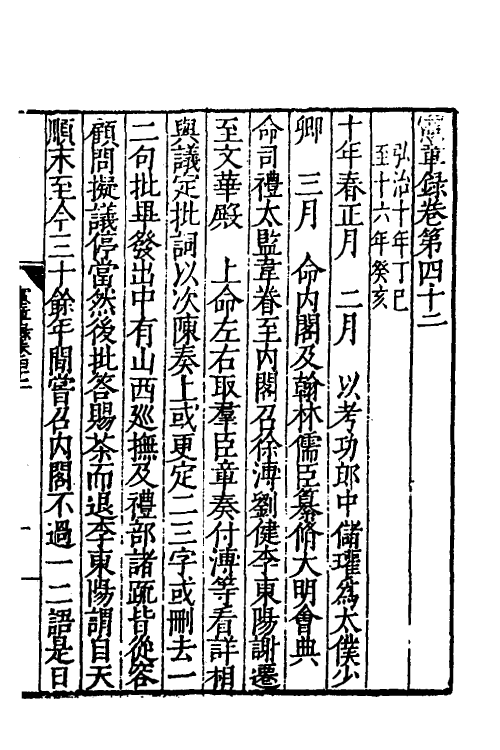 憲章錄卷第四十二
弘治十年丁巳
至十六年癸亥
十年春正月　二月　以考功郎中儲瓘爲太僕少
卿　三月　命內閣及翰林儒臣纂脩大明會典
命司禮太監韋眷至內閣召徐溥劉健李東陽謝遷
至文華殿　上命左右取羣臣章奏付溥等看詳相
與議定批詞以次陳奏上或更定二三字或刪去一
二句批畢發出中有山西巡撫及禮部諸疏皆從容
顧問擬議停當然後批答賜茶而退李東陽謂自天
順末至今三十餘年間嘗召內閣不過一二語是日